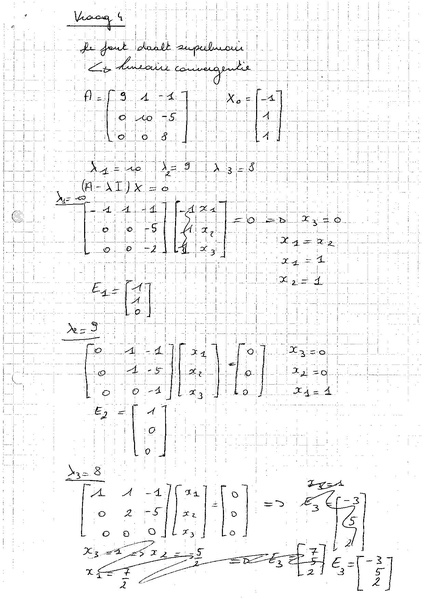 Vraag 4
de fout daalt
↳ lineaire convergentie
A = [9 1 -1; 0 10 -5; 0 0 8] X₀ = [-1; 1; 1]
λ₁ = 10 λ₂ = 9 λ₃ = 8
(A - λI) X = 0
λ₁ = 10
[-1 1 -1; 0 0 -5; 0 0 -2] [x₁; x₂; x₃] = 0 => x₃ = 0
x₁ = x₂
x₁ = 1
x₂ = 1
E₁ = [1; 1; 0]
λ₂ = 9
[0 1 -1; 0 1 -5; 0 0 -1] [x₁; x₂; x₃] = [0; 0; 0] x₃ = 0
x₂ = 0
x₁ = 1
E₂ = [1; 0; 0]
λ₃ = 8
[1 1 -1; 0 2 -5; 0 0 0] [x₁; x₂; x₃] = [0; 0; 0] => E₃ = [-3; 5; 2]
x₃ = 1 => x₂ = 5/2
x₁ = 7/2 => E₃ = [7; 5; 2] E₃ = [-3; 5; 2]